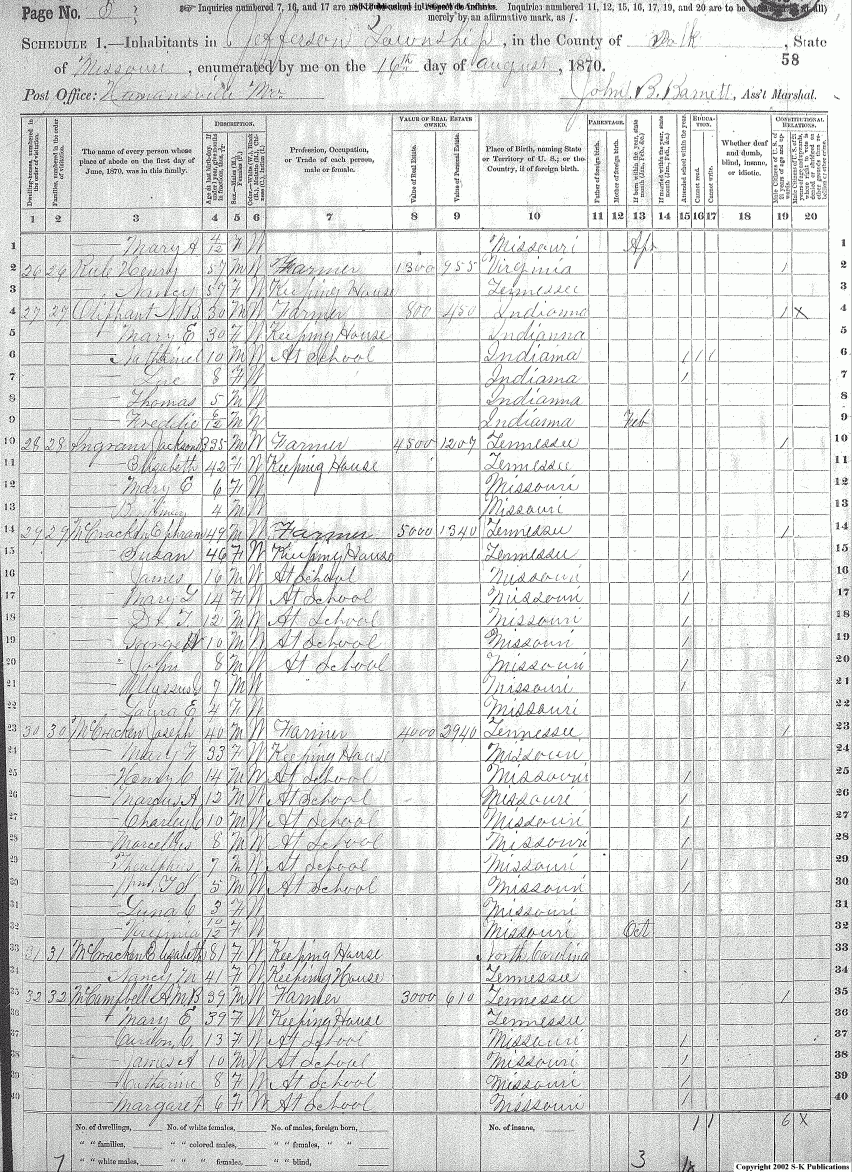 Page No. 8
Inquiries numbered 7, 16, and 17 are not to be asked in respect to infants. Inquiries numbered 11, 12, 15, 16, 17, 19, and 20 are to be answered (if at all)
merely by an affirmative mark, as /.
SCHEDULE 1.—Inhabitants in Jefferson Township, in the County of Polk, State
of Missouri, enumerated by me on the 16th day of August, 1870.
58
Post Office: Humansville Mo. John B. Barnett, Ass't Marshal.
DESCRIPTION. VALUE OF REAL ESTATE OWNED. PARENTAGE. EDUCATION. CONSTITUTIONAL RELATIONS.
Dwelling-houses, numbered in the order of visitation.
Families, numbered in the order of visitation.
The name of every person whose place of abode on the first day of June, 1870, was in this family.
Profession, Occupation, or Trade of each person, male or female.
Value of Real Estate.
Value of Personal Estate.
Place of Birth, naming State or Territory of U. S.; or the Country, if of foreign birth.
Father of foreign birth.
Mother of foreign birth.
Attended school within the year.
Cannot read.
Cannot write.
Whether deaf and dumb, blind, insane, or idiotic.
1 2 3 4 5 6 7 8 9 10 11 12 13 14 15 16 17 18 19 20
1 — Mary A 4/12 F W Missouri Apr 1
2 26 26 Rule Henry 57 M W Farmer 1300 955 Virginia / 2
3 — Nancy 57 F W Keeping House Tennessee 3
4 27 27 Oliphant 30 M W Farmer 800 450 Indianna / X 4
5 — Mary E 30 F W Keeping House Indianna 5
6 10 M W At School Indiana / / / 6
7 8 F W Indiana / 7
8 — Thomas 5 M W Indianna 8
9 6/12 M W Indianna Feb 9
10 28 28 Ingram Jackson 35 M W Farmer 4500 1207 Tennessee / 10
11 — Elizabeth 42 F W Keeping House Tennessee 11
12 — Mary E 6 F W Missouri 12
13 4 M W Missouri 13
14 29 29 McCracken Ephram 49 M W Farmer 5000 1340 Tennessee / 14
15 — Susan 46 F W Keeping House Tennessee 15
16 — James 16 M W At School Missouri / 16
17 — Mary L 14 F W At School Missouri / 17
18 12 M W At School Missouri / 18
19 — George W 10 M W At School Missouri / 19
20 " John 8 M W At School Missouri / 20
21 7 M W Missouri / 21
22 — Laura E 4 F W Missouri 22
23 30 30 McCracken Joseph 40 M W Farmer 4000 2940 Tennessee / 23
24 — Mary F 33 F W Keeping House Missouri 24
25 — Henry C 14 M W At School Missouri / 25
26 — Marcus A 12 M W At School Missouri / 26
27 — Charley C 10 M W At School Missouri / 27
28 — Marcellus 8 M W At School Missouri / 28
29 7 M W At School Missouri / 29
30 5 M W At School Missouri / 30
31 — Luna C 3 F W Missouri 31
32 10/12 F W Missouri Oct 32
33 31 31 McCracken Elizabeth 81 F W Keeping House North Carolina 33
34 — Nancy M 41 F W Keeping House Tennessee 34
35 32 32 McCampbell A M B 39 M W Farmer 3000 610 Tennessee / 35
36 Mary E 39 F W Keeping House Tennessee 36
37 13 F W At School Missouri / 37
38 — James A 10 M W At School Missouri / 38
39 — Katharine 8 F W At School Missouri / 39
40 — Margaret 6 F W At School Missouri / 40
No. of dwellings, No. of white females, No. of males, foreign born, No. of insane, 1 1 6 X
" " families, " " colored males, " " females, " "
7 " " white males, " " " females, " " blind, 3
Copyright 2002 S-K Publications